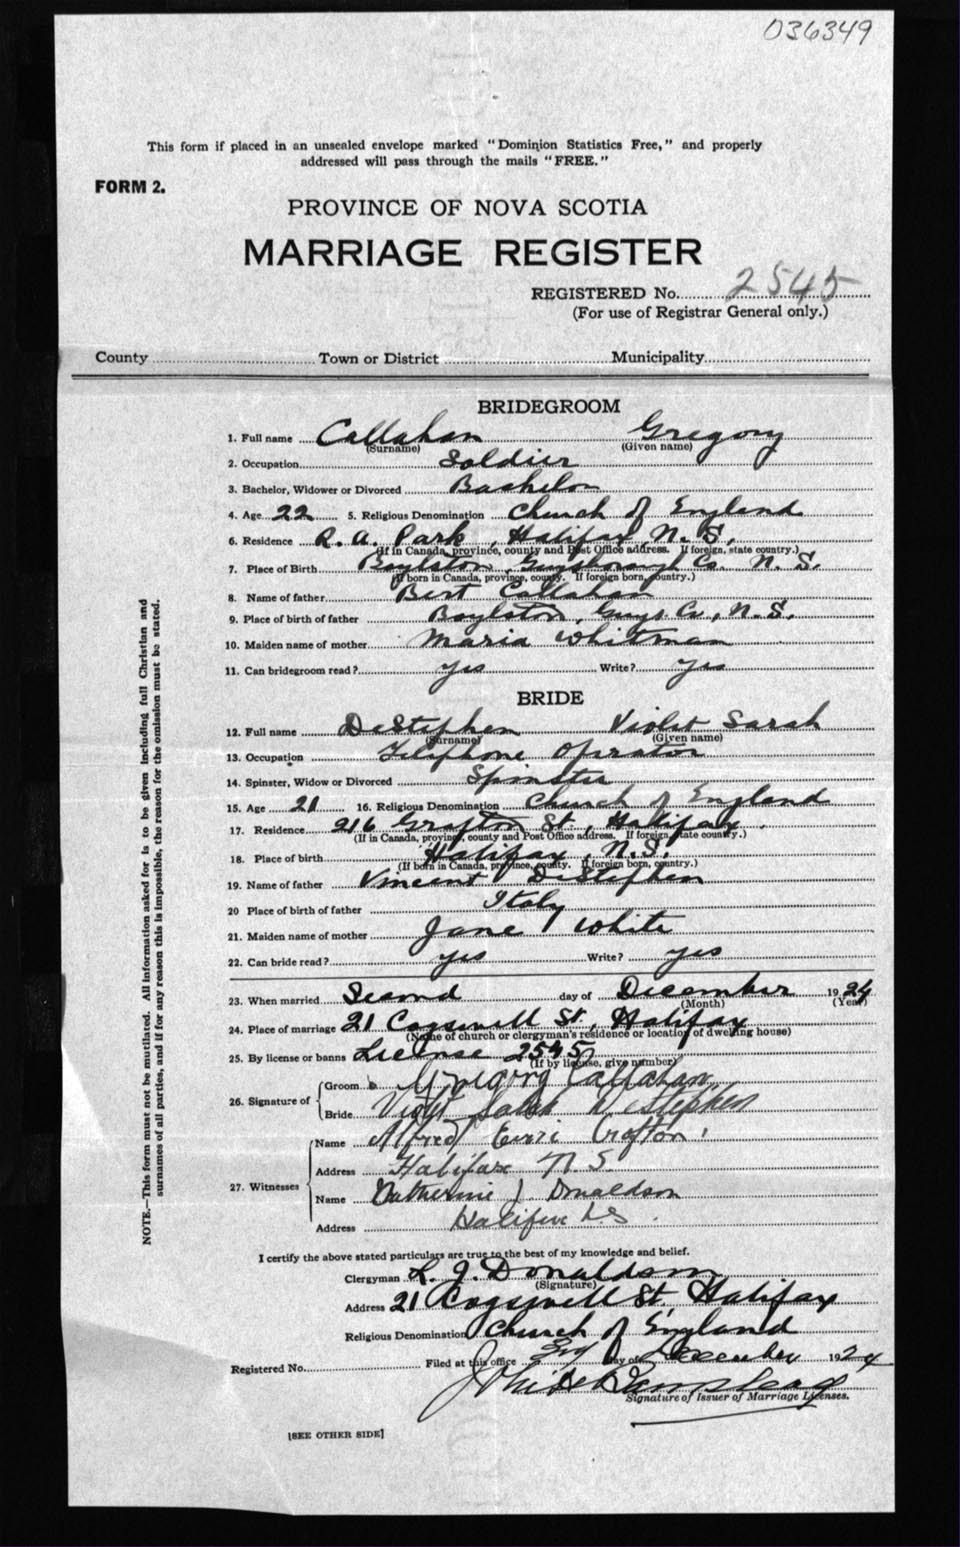 036349
This form if placed in an unsealed envelope marked "Dominion Statistics Free," and properly
addressed will pass through the mails "FREE."
FORM 2.
PROVINCE OF NOVA SCOTIA
MARRIAGE REGISTER
REGISTERED No. 2545
(For use of Registrar General only.)
County Town or District Municipality
BRIDEGROOM
1. Full name Callahan Gregory
(Surname) (Given name)
2. Occupation Soldier
3. Bachelor, Widower or Divorced Bachelor
4. Age 22 5. Religious Denomination Church of England
6. Residence R. A. Park, Halifax N. S.
(If in Canada, province, county and Post Office address. If foreign, state country.)
7. Place of Birth Boylston, Guysborough Co. N. S.
(If born in Canada, province, county. If foreign born, country.)
8. Name of father Bert Callahan
9. Place of birth of father Boylston, Guys. Co., N.S.
10. Maiden name of mother Maria Whitman
11. Can bridegroom read? yes Write? yes
BRIDE
12. Full name DeStephen Violet Sarah
(Surname) (Given name)
13. Occupation Telephone Operator
14. Spinster, Widow or Divorced Spinster
15. Age 21 16. Religious Denomination Church of England
17. Residence 216 Grafton St., Halifax.
(If in Canada, province, county and Post Office address. If foreign, state country.)
18. Place of birth Halifax, N.S.
(If born in Canada, province, county. If foreign born, country.)
19. Name of father Vincent DeStephen
20 Place of birth of father Italy
21. Maiden name of mother Jane White
22. Can bride read? yes Write? yes
23. When married Second day of December 1924
(Month) (Year)
24. Place of marriage 21 Cogswell St., Halifax
(Name of church or clergyman's residence or location of dwelling house)
25. By license or banns License 2545
(If by license, give number)
26. Signature of
Groom Gregory Callahan
Bride Violet Sarah DeStephen
27. Witnesses
Name Alfred Crofton
Address Halifax N S
Name Catherine J Donaldson
Address Halifax N.S.
I certify the above stated particulars are true to the best of my knowledge and belief.
Clergyman L. J. Donaldson
(Signature)
Address 21 Cogswell St. Halifax
Religious Denomination Church of England
Registered No. Filed at this office 3rd day of December 1924
Signature of Issuer of Marriage Licenses.
[SEE OTHER SIDE]
NOTE.—This form must not be mutilated. All information asked for is to be given including full Christian and
surnames of all parties, and if for any reason this is impossible, the reason for the omission must be stated.